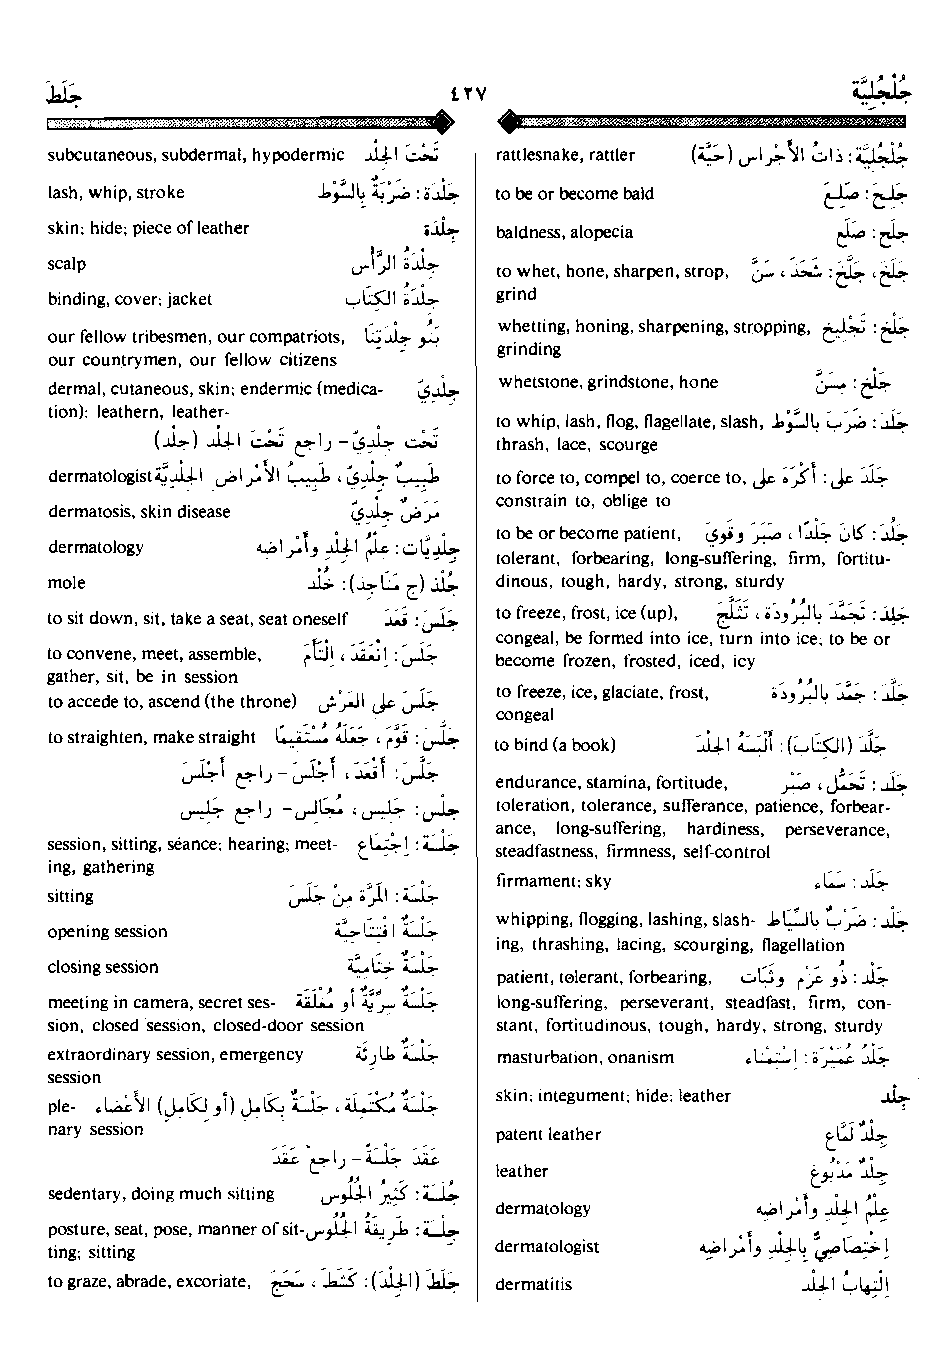 جُلْجُلِيَّة ٤٢٧ جَلَطَ
جُلْجُلِيَّة : ذاتُ الأجْراس (حَيَّة) rattlesnake, rattler
جَلِحَ : صَلِعَ to be or become bald
جَلَح : صَلَع baldness, alopecia
جَلَخَ، جَلَّخَ : شَحَذَ ، سَنَّ to whet, hone, sharpen, strop,
grind
جَلْخ : تَجْلِيخ whetting, honing, sharpening, stropping,
grinding
جَلْخ : مِسَنّ whetstone, grindstone, hone
جَلَدَ : ضَرَبَ بالسَّوْط to whip, lash, flog, flagellate, slash,
thrash, lace, scourge
جَلَدَ على : أكْرَهَ على to force to, compel to, coerce to,
constrain to, oblige to
جَلُدَ : كانَ جَلْدًا ، صَبَرَ وقَوِيَ to be or become patient,
tolerant, forbearing, long-suffering, firm, fortitu-
dinous, tough, hardy, strong, sturdy
جَلِدَ : تَجَمَّدَ بالبُرُودَة ، تَثَلَّجَ to freeze, frost, ice (up),
congeal, be formed into ice, turn into ice; to be or
become frozen, frosted, iced, icy
جَلَّدَ : جَمَّدَ بالبُرُودَة to freeze, ice, glaciate, frost,
congeal
جَلَّدَ (الكِتَابَ) : ألْبَسَهُ الجِلْدَ to bind (a book)
جَلَد : تَحَمُّل ، صَبْر endurance, stamina, fortitude,
toleration, tolerance, sufferance, patience, forbear-
ance, long-suffering, hardiness, perseverance,
steadfastness, firmness, self-control
جَلَد : سَمَاء firmament; sky
جَلْد : ضَرْبٌ بالسِّيَاط whipping, flogging, lashing, slash-
ing, thrashing, lacing, scourging, flagellation
جَلْد : ذُو عَزْم وثَبَات patient, tolerant, forbearing,
long-suffering, perseverant, steadfast, firm, con-
stant, fortitudinous, tough, hardy, strong, sturdy
جَلْدُ عُمَيْرَة : اِسْتِمْنَاء masturbation, onanism
جِلْد skin; integument; hide; leather
جِلْدٌ لَمَّاع patent leather
جِلْدٌ مَدْبُوغ leather
عِلْمُ الجِلْدِ وأمْراضِه dermatology
اِخْتِصَاصِيٌّ بِالجِلْدِ وأمْراضِه dermatologist
اِلْتِهابُ الجِلْد dermatitis
تَحْتَ الجِلْد subcutaneous, subdermal, hypodermic
جَلْدَة : ضَرْبَةٌ بِالسَّوْط lash, whip, stroke
جِلْدَة skin; hide; piece of leather
جِلْدَةُ الرَّأْس scalp
جِلْدَةُ الكِتَاب binding, cover; jacket
بَنُو جِلْدَتِنَا our fellow tribesmen, our compatriots,
our countrymen, our fellow citizens
جِلْدِيّ dermal, cutaneous, skin; endermic (medica-
tion); leathern, leather-
تَحْتَ جِلْدِيّ - راجع تَحْتَ الجِلْد (جِلْد)
طَبِيبٌ جِلْدِيّ ، طَبِيبُ الأمْراضِ الجِلْدِيَّة dermatologist
مَرَضٌ جِلْدِيّ dermatosis, skin disease
جِلْدِيَّات : عِلْمُ الجِلْدِ وأمْراضِه dermatology
جُلْذ (ج مَنَاجِذ) : خُلْد mole
جَلَسَ : قَعَدَ to sit down, sit, take a seat, seat oneself
جَلَسَ : اِنْعَقَدَ ، اِلْتَأَمَ to convene, meet, assemble,
gather, sit, be in session
جَلَسَ على العَرْش to accede to, ascend (the throne)
جَلَّسَ : قَوَّمَ ، جَعَلَهُ مُسْتَقِيمًا to straighten, make straight
جَلَّسَ : أقْعَدَ ، أجْلَسَ - راجع أجْلَسَ
جِلْس : جَلِيس ، مُجَالِس - راجع جَلِيس
جَلْسَة : اِجْتِمَاع session, sitting, séance; hearing; meet-
ing, gathering
جَلْسَة : المَرَّة مِنْ جَلَسَ sitting
جَلْسَةٌ افْتِتَاحِيَّة opening session
جَلْسَةٌ خِتَامِيَّة closing session
جَلْسَةٌ سِرِّيَّةٌ أو مُغْلَقَة meeting in camera, secret ses-
sion, closed session, closed-door session
جَلْسَةٌ طارِئَة extraordinary session, emergency
session
جَلْسَةٌ مُكْتَمِلَة ، جَلْسَةٌ بِكَامِلِ (أو لِكَامِلِ) الأعْضَاء ple-
nary session
عَقَدَ جَلْسَةً - راجع عَقَدَ
جُلَسَة : كَثِيرُ الجُلُوس sedentary, doing much sitting
جِلْسَة : طَرِيقَةُ الجُلُوس posture, seat, pose, manner of sit-
ting; sitting
جَلَطَ (الجِلْدَ) : كَشَطَ ، سَحَجَ to graze, abrade, excoriate,